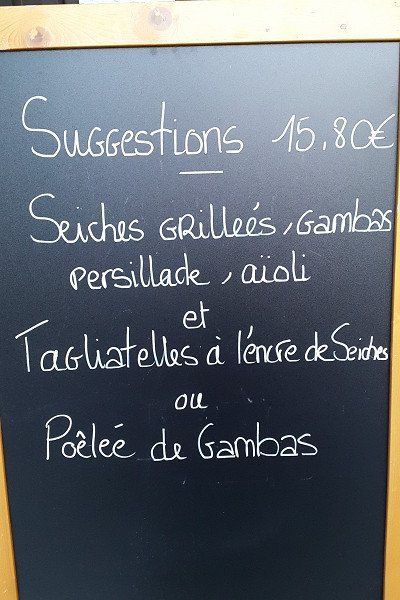 Suggestions 15.80€
Seiches Grilleés, Gambas
persillade, aïoli
et
Tagliatelles à l'encre de Seiches
ou
Poêleé de Gambas